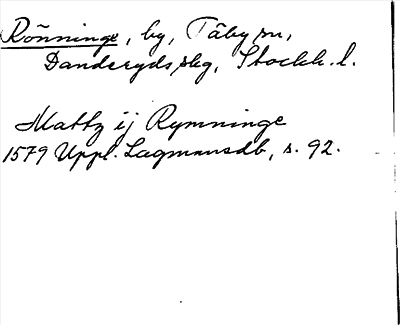 Rönninge, by, Täby sn,
Danderyds skg, Stockh. l.
Mattz ij Rymninge
1579 Uppl. Lagmansdb, s. 92.